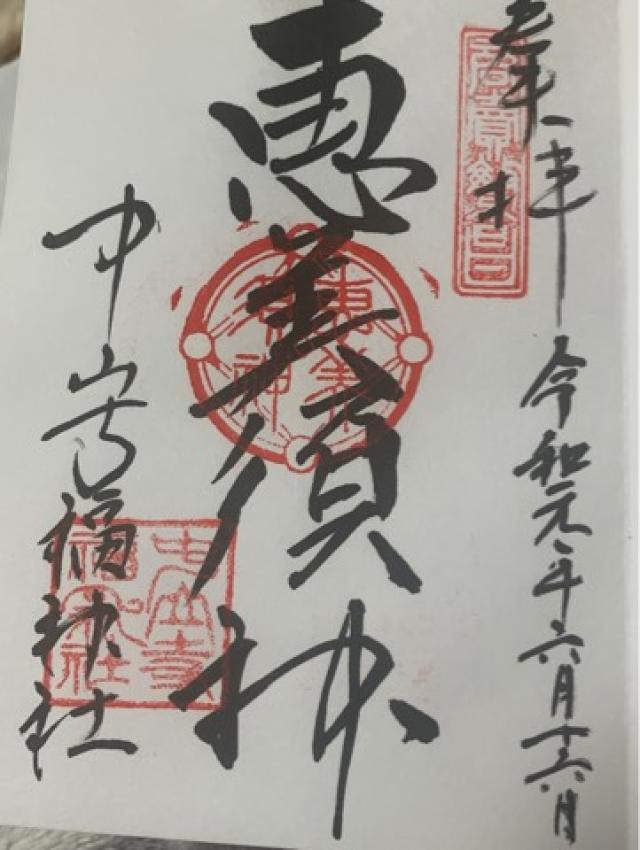 奉拝 令和元年六月十六日
恵美須神
中山寺福神社